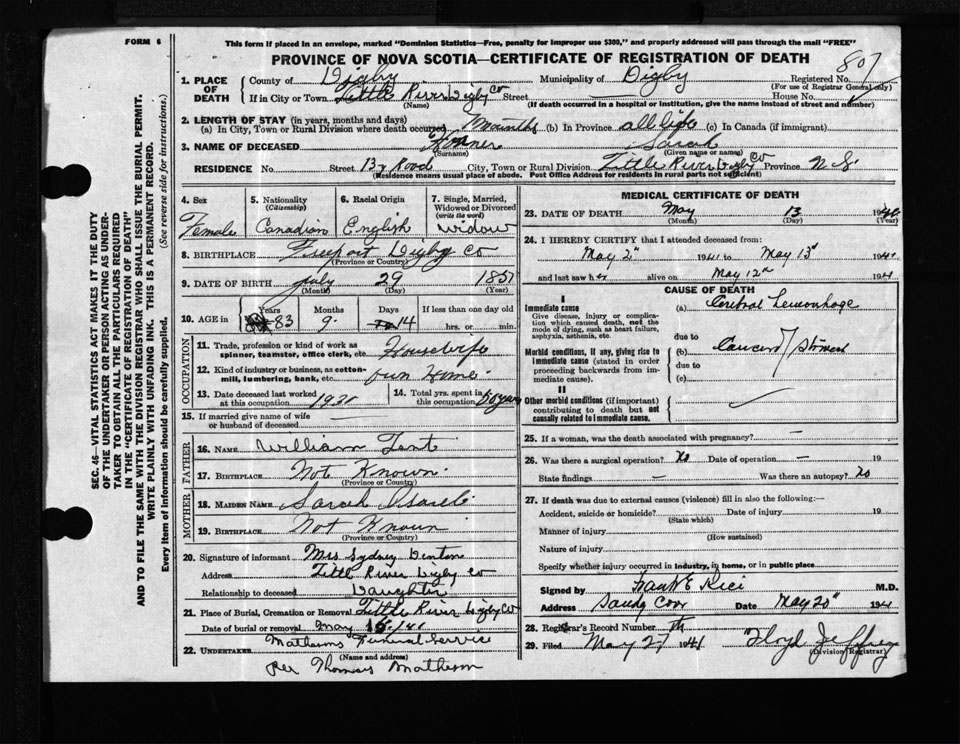 FORM 6
This form if placed in an envelope, marked "Dominion Statistics—Free, penalty for improper use $300," and properly addressed will pass through the mail "FREE"
PROVINCE OF NOVA SCOTIA—CERTIFICATE OF REGISTRATION OF DEATH
1. PLACE OF DEATH County of Digby Municipality of Digby Registered No. 807
(For use of Registrar General only)
If in City or Town Little River Digby Co Street House No.
(Name) (If death occurred in a hospital or institution, give the name instead of street and number)
2. LENGTH OF STAY (in years, months and days)
(a) In City, Town or Rural Division where death occurred Months (b) In Province all life (c) In Canada (if immigrant)
3. NAME OF DECEASED Sarah
(Surname) (Given name or names)
RESIDENCE No. Street By Road City, Town or Rural Division Little River Digby Co Province N S
(Residence means usual place of abode. Post Office Address for residents in rural parts not sufficient)
4. Sex Female
5. Nationality (Citizenship) Canadian
6. Racial Origin English
7. Single, Married, Widowed or Divorced (write the word) widow
8. BIRTHPLACE Freeport Digby Co
(Province or Country)
9. DATE OF BIRTH July 29 1857
(Month) (Day) (Year)
10. AGE in Years Months Days If less than one day old
83 9 14 hrs. or min.
OCCUPATION
11. Trade, profession or kind of work as spinner, teamster, office clerk, etc. Housewife
12. Kind of industry or business, as cotton-mill, lumbering, bank, etc. own Home
13. Date deceased last worked at this occupation 1931
14. Total yrs. spent in this occupation 60 years
15. If married give name of wife or husband of deceased
FATHER
16. NAME William Tent
17. BIRTHPLACE Not Known
(Province or Country)
MOTHER
18. MAIDEN NAME Sarah
19. BIRTHPLACE Not Known
(Province or Country)
20. Signature of informant Mrs Sydney Denton
Address Little River Digby Co
Relationship to deceased Daughter
21. Place of Burial, Cremation or Removal Little River Digby Co
Date of burial or removal May
22. UNDERTAKER Mathesons Funeral Service
(Name and address)
Per Thomas Matheson
MEDICAL CERTIFICATE OF DEATH
23. DATE OF DEATH May 13 19
(Month) (Day) (Year)
24. I HEREBY CERTIFY that I attended deceased from
May 2nd 1941 to May 13th 1941
and last saw her alive on May 12th 1941
CAUSE OF DEATH
I
Immediate cause
Give disease, injury or complication which caused death, not the mode of dying, such as heart failure, asphyxia, asthenia, etc.
(a) Cerebral Hemorrhage
due to
Morbid conditions, if any, giving rise to immediate cause (stated in order proceeding backwards from immediate cause).
(b) Cancer of Stomach
due to
(c)
II
Other morbid conditions (if important) contributing to death but not causally related to immediate cause.
25. If a woman, was the death associated with pregnancy? —
26. Was there a surgical operation? No Date of operation —
State findings — Was there an autopsy? No
27. If death was due to external causes (violence) fill in also the following:—
Accident, suicide or homicide? Date of injury 19
(State which)
Manner of injury
(How sustained)
Nature of injury
Specify whether injury occurred in industry, in home, or in public place
Signed by Frank E Rice M.D.
Address Sandy Cove Date May 20th 1941
28. Registrar's Record Number
29. Filed May 27 1941 Floyd Jeffrey
(Division Registrar)
SEC. 46—VITAL STATISTICS ACT MAKES IT THE DUTY
OF THE UNDERTAKER OR PERSON ACTING AS UNDER-
TAKER TO OBTAIN ALL THE PARTICULARS REQUIRED
IN THE "CERTIFICATE OF REGISTRATION OF DEATH"
AND TO FILE THE SAME WITH THE DIVISION REGISTRAR WHO SHALL ISSUE THE BURIAL PERMIT.
WRITE PLAINLY WITH UNFADING INK. THIS IS A PERMANENT RECORD.
Every item of information should be carefully supplied. (See reverse side for instructions.)